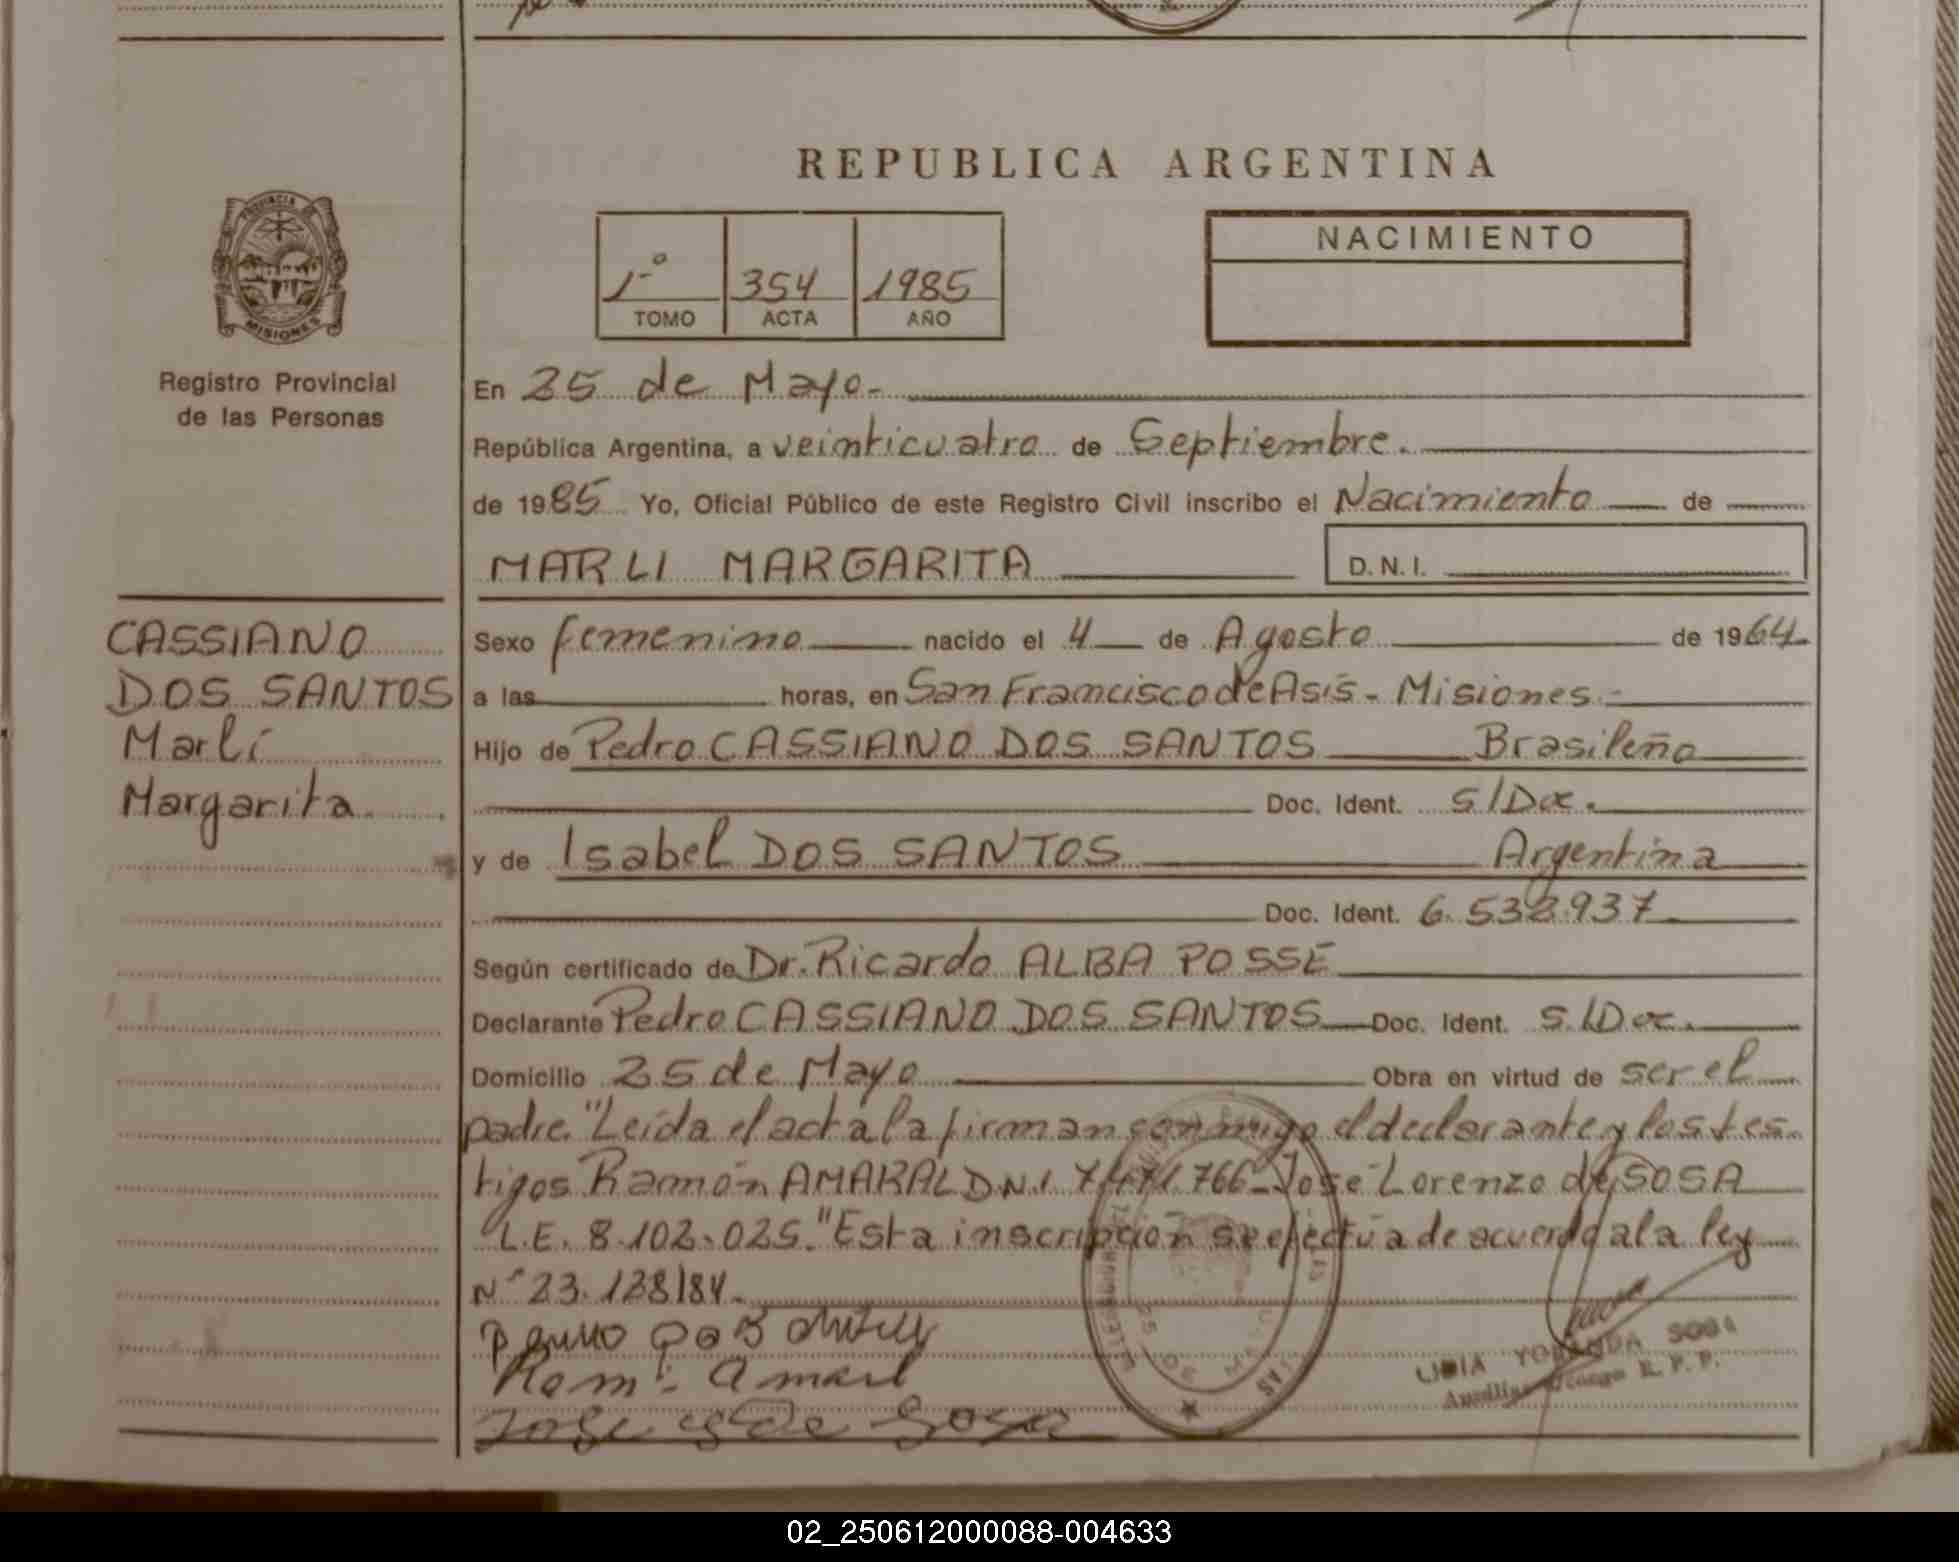 REPUBLICA ARGENTINA
PROVINCIA DE
MISIONES
Registro Provincial
de las Personas
1º 354 1985
TOMO ACTA AÑO
NACIMIENTO
En 25 de Mayo.-
República Argentina, a veinticuatro de Septiembre.
de 1985 Yo, Oficial Público de este Registro Civil inscribo el Nacimiento de
MARLI MARGARITA D.N.I.
CASSIANO
DOS SANTOS
Marlí
Margarita.
Sexo femenino nacido el 4 de Agosto de 1964
a las horas, en San Francisco de Asis - Misiones.-
Hijo de Pedro CASSIANO DOS SANTOS Brasileño
Doc. Ident. S/Doc.
y de Isabel DOS SANTOS Argentina
Doc. Ident. 6.532.937
Según certificado de Dr. Ricardo ALBA POSSE
Declarante Pedro CASSIANO DOS SANTOS Doc. Ident. S/Doc.
Domicilio 25 de Mayo Obra en virtud de ser el
padre. "Leída el acta la firman conmigo el declarante y los tes-
tigos Ramón AMARAL D.N.I. 7.471.766 - José Lorenzo de SOSA
L.E. 8.102.025. "Esta inscripción se efectúa de acuerdo a la ley
Nº 23.128/84.-
Amarl
Jose de Sosa
LIDIA YOLANDA SOSA
R. P. P.
02_250612000088-004633